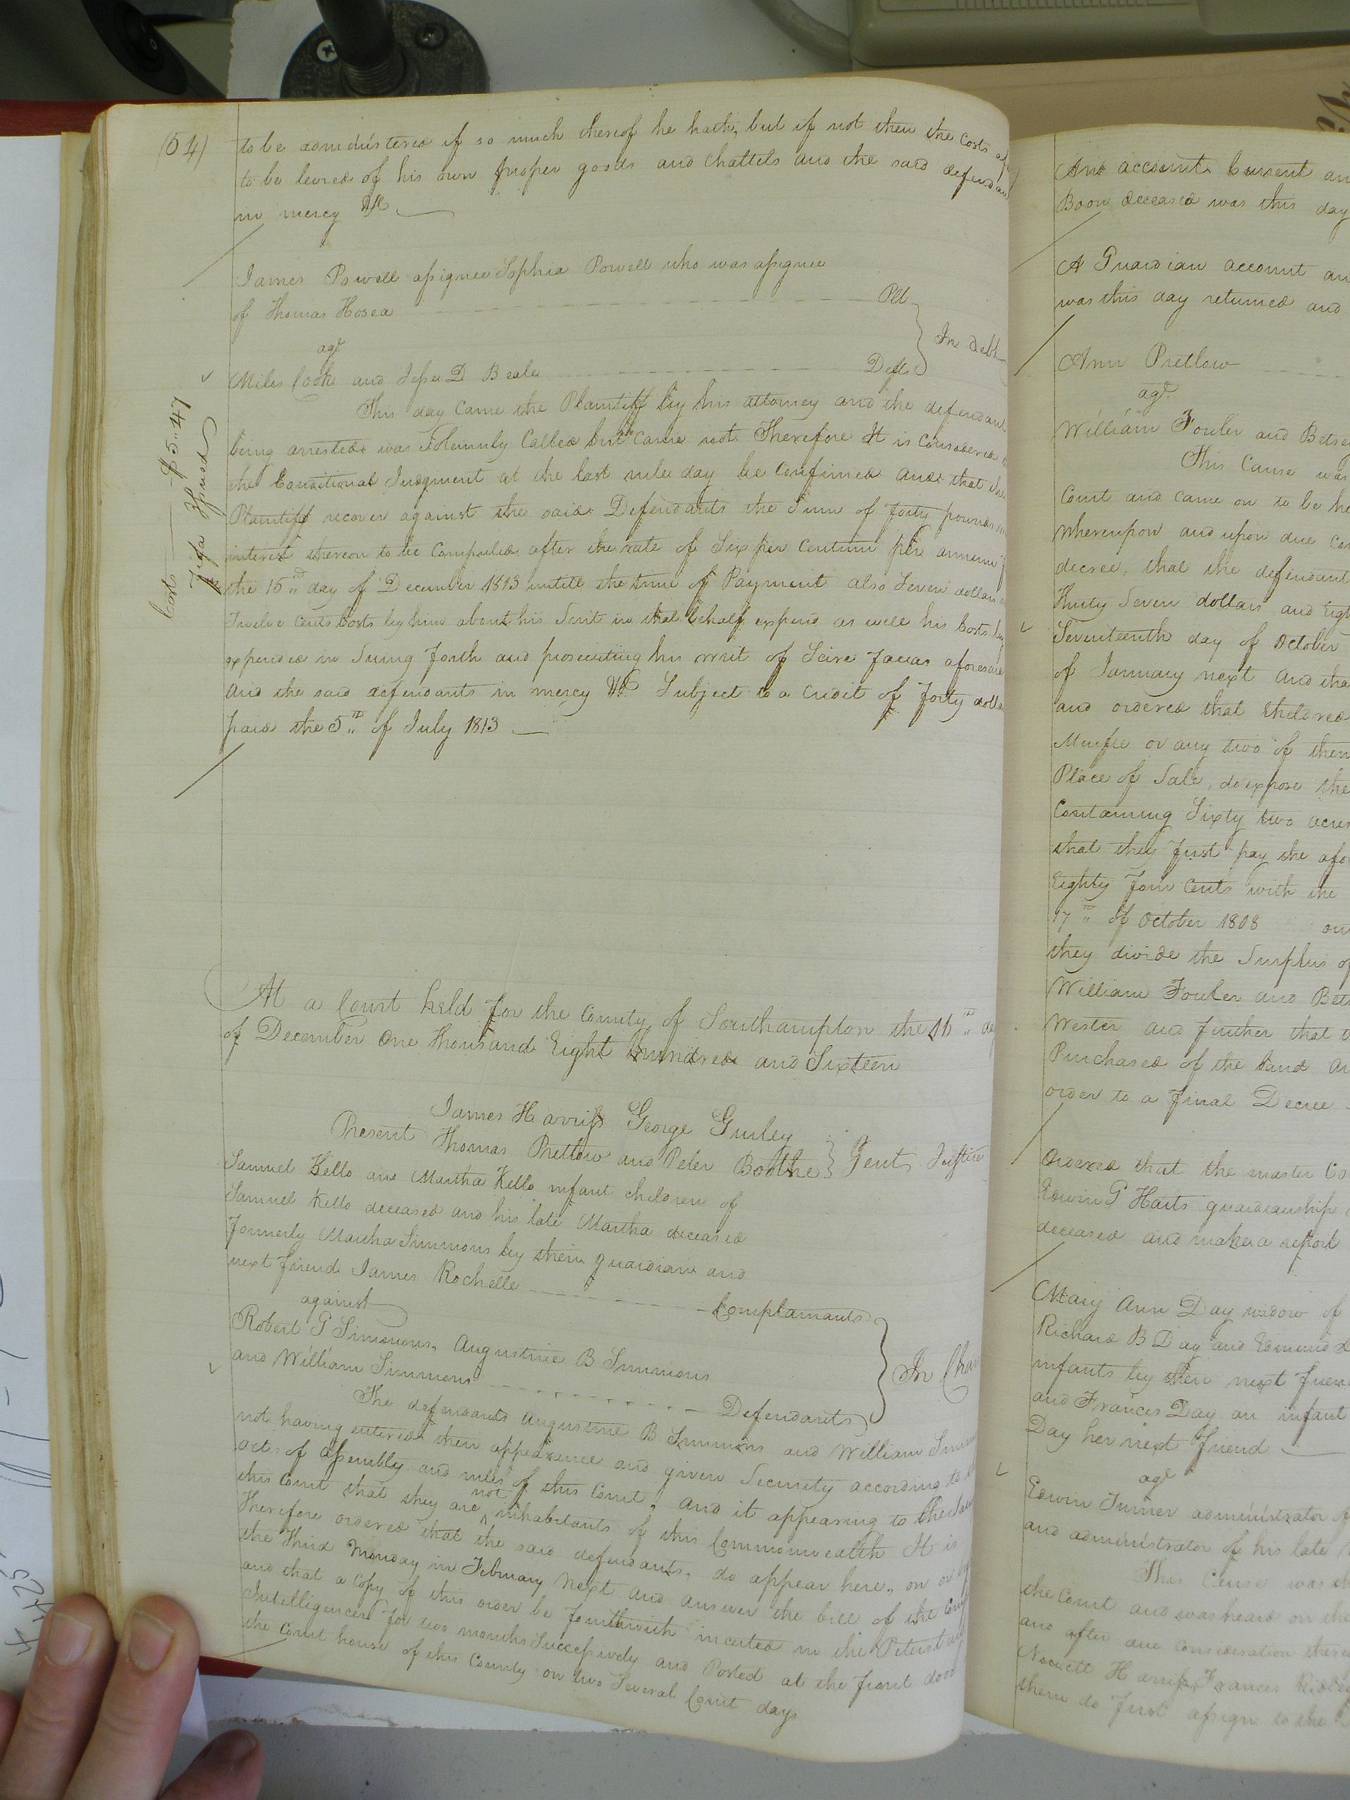 (54)
to be administered if so much thereof he hath, but if not then the Costs
to be levied of his own proper goods and chattels and the said defendant
in mercy &c
James Powell assignee Sophia Powell who was assignee
of Thomas Hosea Plt
agt
In debt
Miles Cooke and Jesse D Beale Defts
This day came the Plaintiff by his attorney and the defendant
being arrested was Solemnly Called but Came not Therefore It is Considered
the Conditional Judgment at the last rules day be Confirmed and that
Plaintiff recover against the said Defendants the Sum of forty pounds
interest thereon to be Computed after the rate of Six per Centum per annum
the 15th day of December 1813 untill the time of Payment also Seven dollars
Twelve Cents Costs by him about his Suit in that behalf expend as well his Costs by
expended in Suing forth and prosecuting his writ of Scire Facias aforesaid
And the said defendants in mercy &c Subject to a Credit of forty dolla
paid the 5th of July 1813
Costs $5..47
Fifa Issued
At a Court held for the County of Southampton the 16th
of December One thousand Eight hundred and Sixteen
James Harriss George Gurley
Present Thomas Pretlow and Peter Boothe Gent Justice
Samuel Kello and Martha Kello infant children of
Samuel Kello deceased and his late Martha deceased
formerly Martha Simmons by their guardian and
next friend James Rochelle Complainants
against
Robert G Simmons, Augustine B Simmons
and William Simmons Defendants
In Chan
The defendants Augustine B Simmons and William Simm
not having entered their appearance and given Security according to
act of Assembly and rules of this Court, and it appearing to the
this Court that they are not inhabitants of this Commonwealth It is
Therefore ordered that the said defendants, do appear here, on
the third Monday in February next and answer the bill of the Com
and that a Copy of this order be forthwith inserted in the Petersbu
Intelligencer for two months Successively and Posted at the front door
the Court house of this County on two Several Court days
And account Current an
Boon deceased was this day
A Guardian account an
was this day returned and
Ann Pretlow
agt
William Fowler and Betse
This Cause was
Court and came on to be he
Whereupon and upon due con
decree, that the defendant
Thirty Seven dollars and Eigh
Seventeenth day of October
of January next and tha
and ordered that Etheldred
or any two of them
Place of Sale, do expose the
Containing Sixty two acres
that they first pay the afo
Eighty four Cents with the
17th of October 1808
they divide the Surplus of
William Fowler and Bet
Wester and further that
Purchased of the land
order to a final Decree
Ordered that the master Co
Edwin G Harts guardianship
deceased and make a report
Mary Ann Day widow of
Richard B Day and Edmund
infants by their next frien
and Frances Day an infant
Day her next friend
agt
Edwin Turner administrator
and administrator of his late
This Cause was
the Court and was heard on the
and after due consideration there
Newett Harriss, Frances Ridl
them do first assign to the